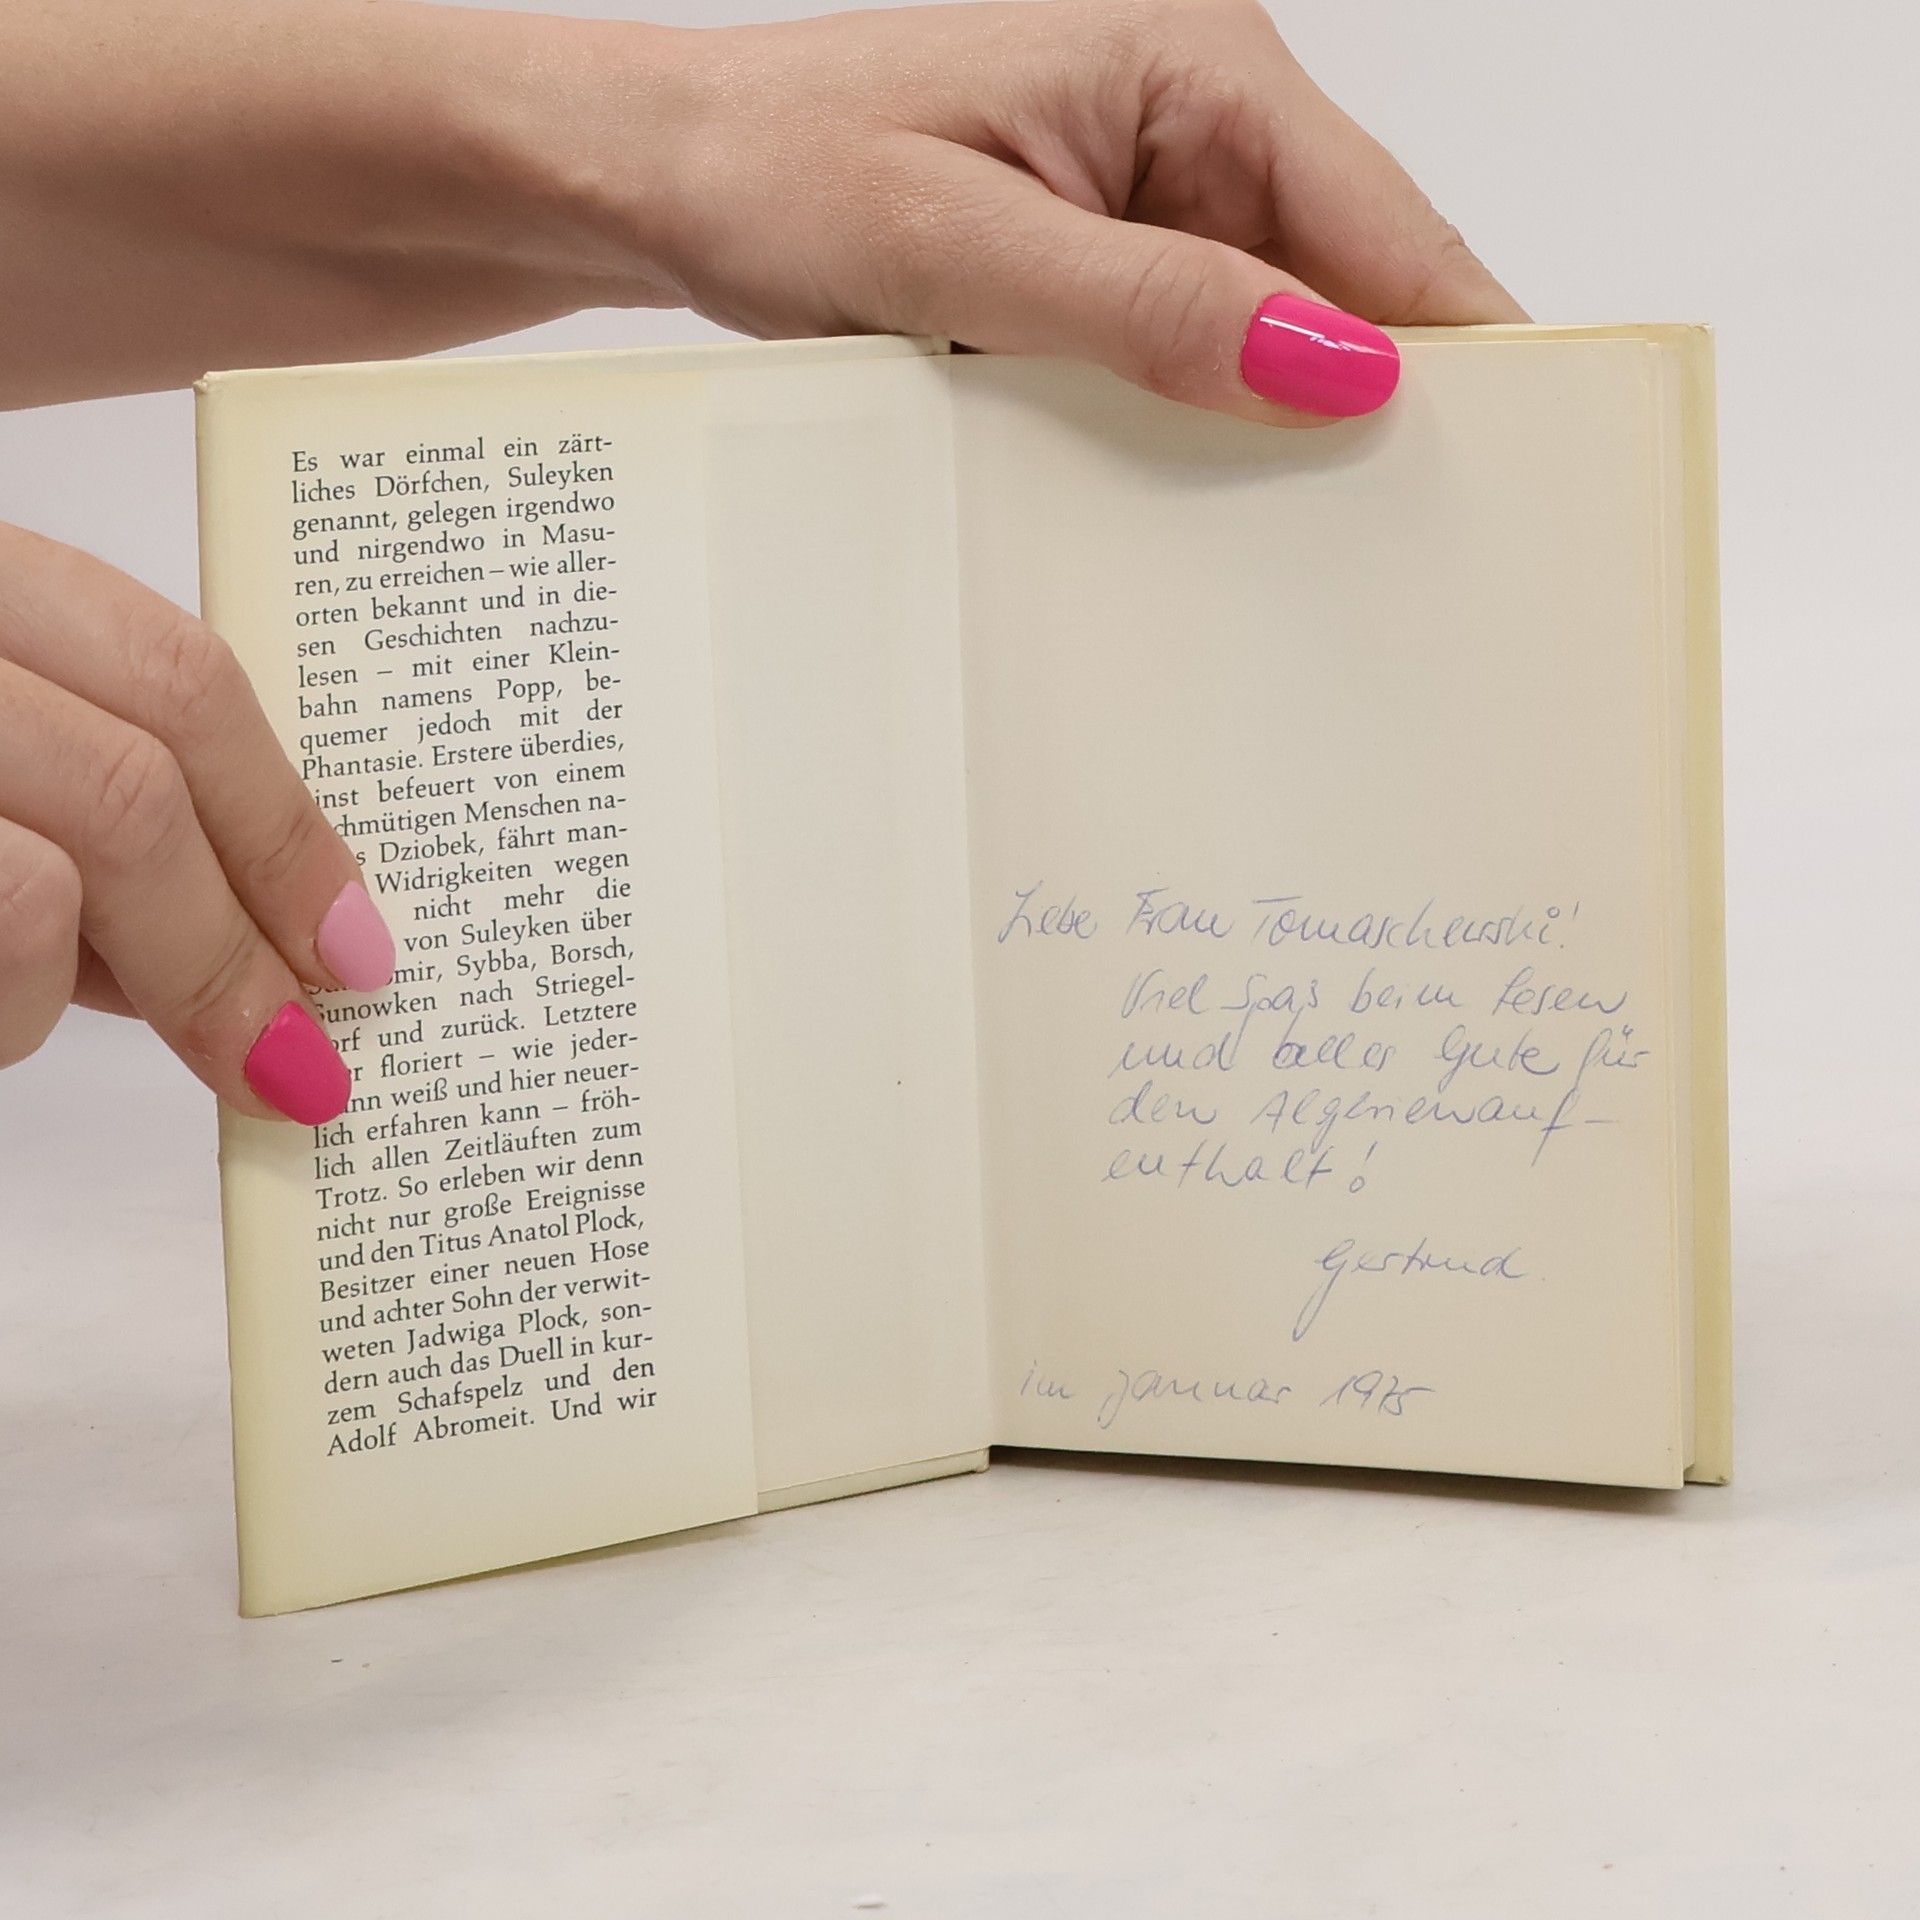 Es war einmal ein zärt-
liches Dörfchen, Suleyken
genannt, gelegen irgendwo
und nirgendwo in Masu-
ren, zu erreichen – wie aller-
orten bekannt und in die-
sen Geschichten nachzu-
lesen – mit einer Klein-
bahn namens Popp, be-
quemer jedoch mit der
Phantasie. Erstere überdies,
inst befeuert von einem
chmütigen Menschen na-
s Dziobek, fährt man-
Widrigkeiten wegen
nicht mehr die
von Suleyken über
mir, Sybba, Borsch,
Sunowken nach Striegel-
orf und zurück. Letztere
r floriert – wie jeder-
ann weiß und hier neuer-
lich erfahren kann – fröh-
lich allen Zeitläuften zum
Trotz. So erleben wir denn
nicht nur große Ereignisse
und den Titus Anatol Plock,
Besitzer einer neuen Hose
und achter Sohn der verwit-
weten Jadwiga Plock, son-
dern auch das Duell in kur-
zem Schafspelz und den
Adolf Abromeit. Und wir
Liebe Frau Tomaschewski!
Viel Spaß beim Lesen
und alles Gute für
den Algerienauf-
enthalt!
Gertrud.
im Januar 1975